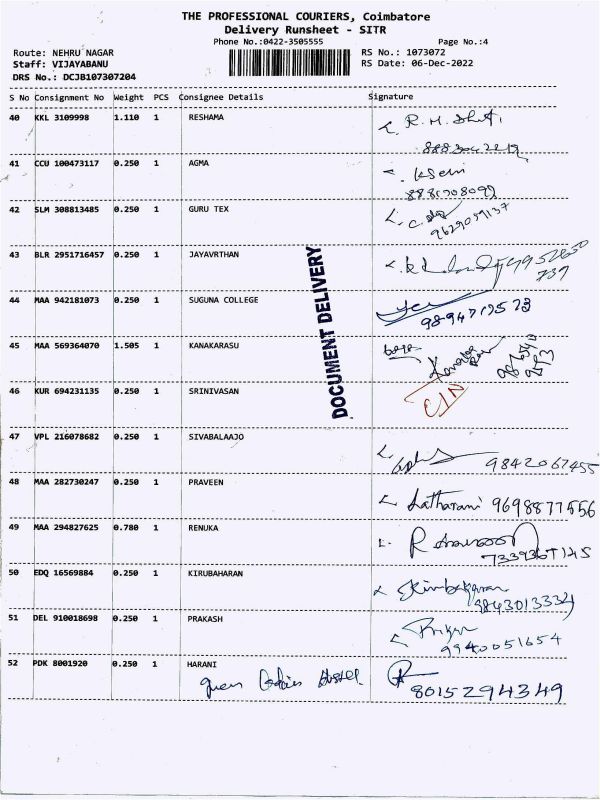 THE PROFESSIONAL COURIERS, Coimbatore
Delivery Runsheet - SITR
Phone No.:0422-3505555 Page No.:4
Route: NEHRU NAGAR RS No.: 1073072
Staff: VIJAYABANU RS Date: 06-Dec-2022
DRS No.: DCJB107307204
S No Consignment No Weight PCS Consignee Details Signature
40 KKL 3109998 1.110 1 RESHAMA
41 CCU 100473117 0.250 1 AGMA
42 SLM 308813485 0.250 1 GURU TEX
9629059137
43 BLR 2951716457 0.250 1 JAYAVRTHAN
44 MAA 942181073 0.250 1 SUGUNA COLLEGE
45 MAA 569364070 1.505 1 KANAKARASU
46 KUR 694231135 0.250 1 SRINIVASAN
47 VPL 216078682 0.250 1 SIVABALAAJO
9842067455
48 MAA 282730247 0.250 1 PRAVEEN
Latharani 9698877556
49 MAA 294827625 0.780 1 RENUKA
50 EDQ 16569884 0.250 1 KIRUBAHARAN
9843013334
51 DEL 910018698 0.250 1 PRAKASH
9940051654
52 PDK 8001920 0.250 1 HARANI
8015294349
DOCUMENT DELIVERY